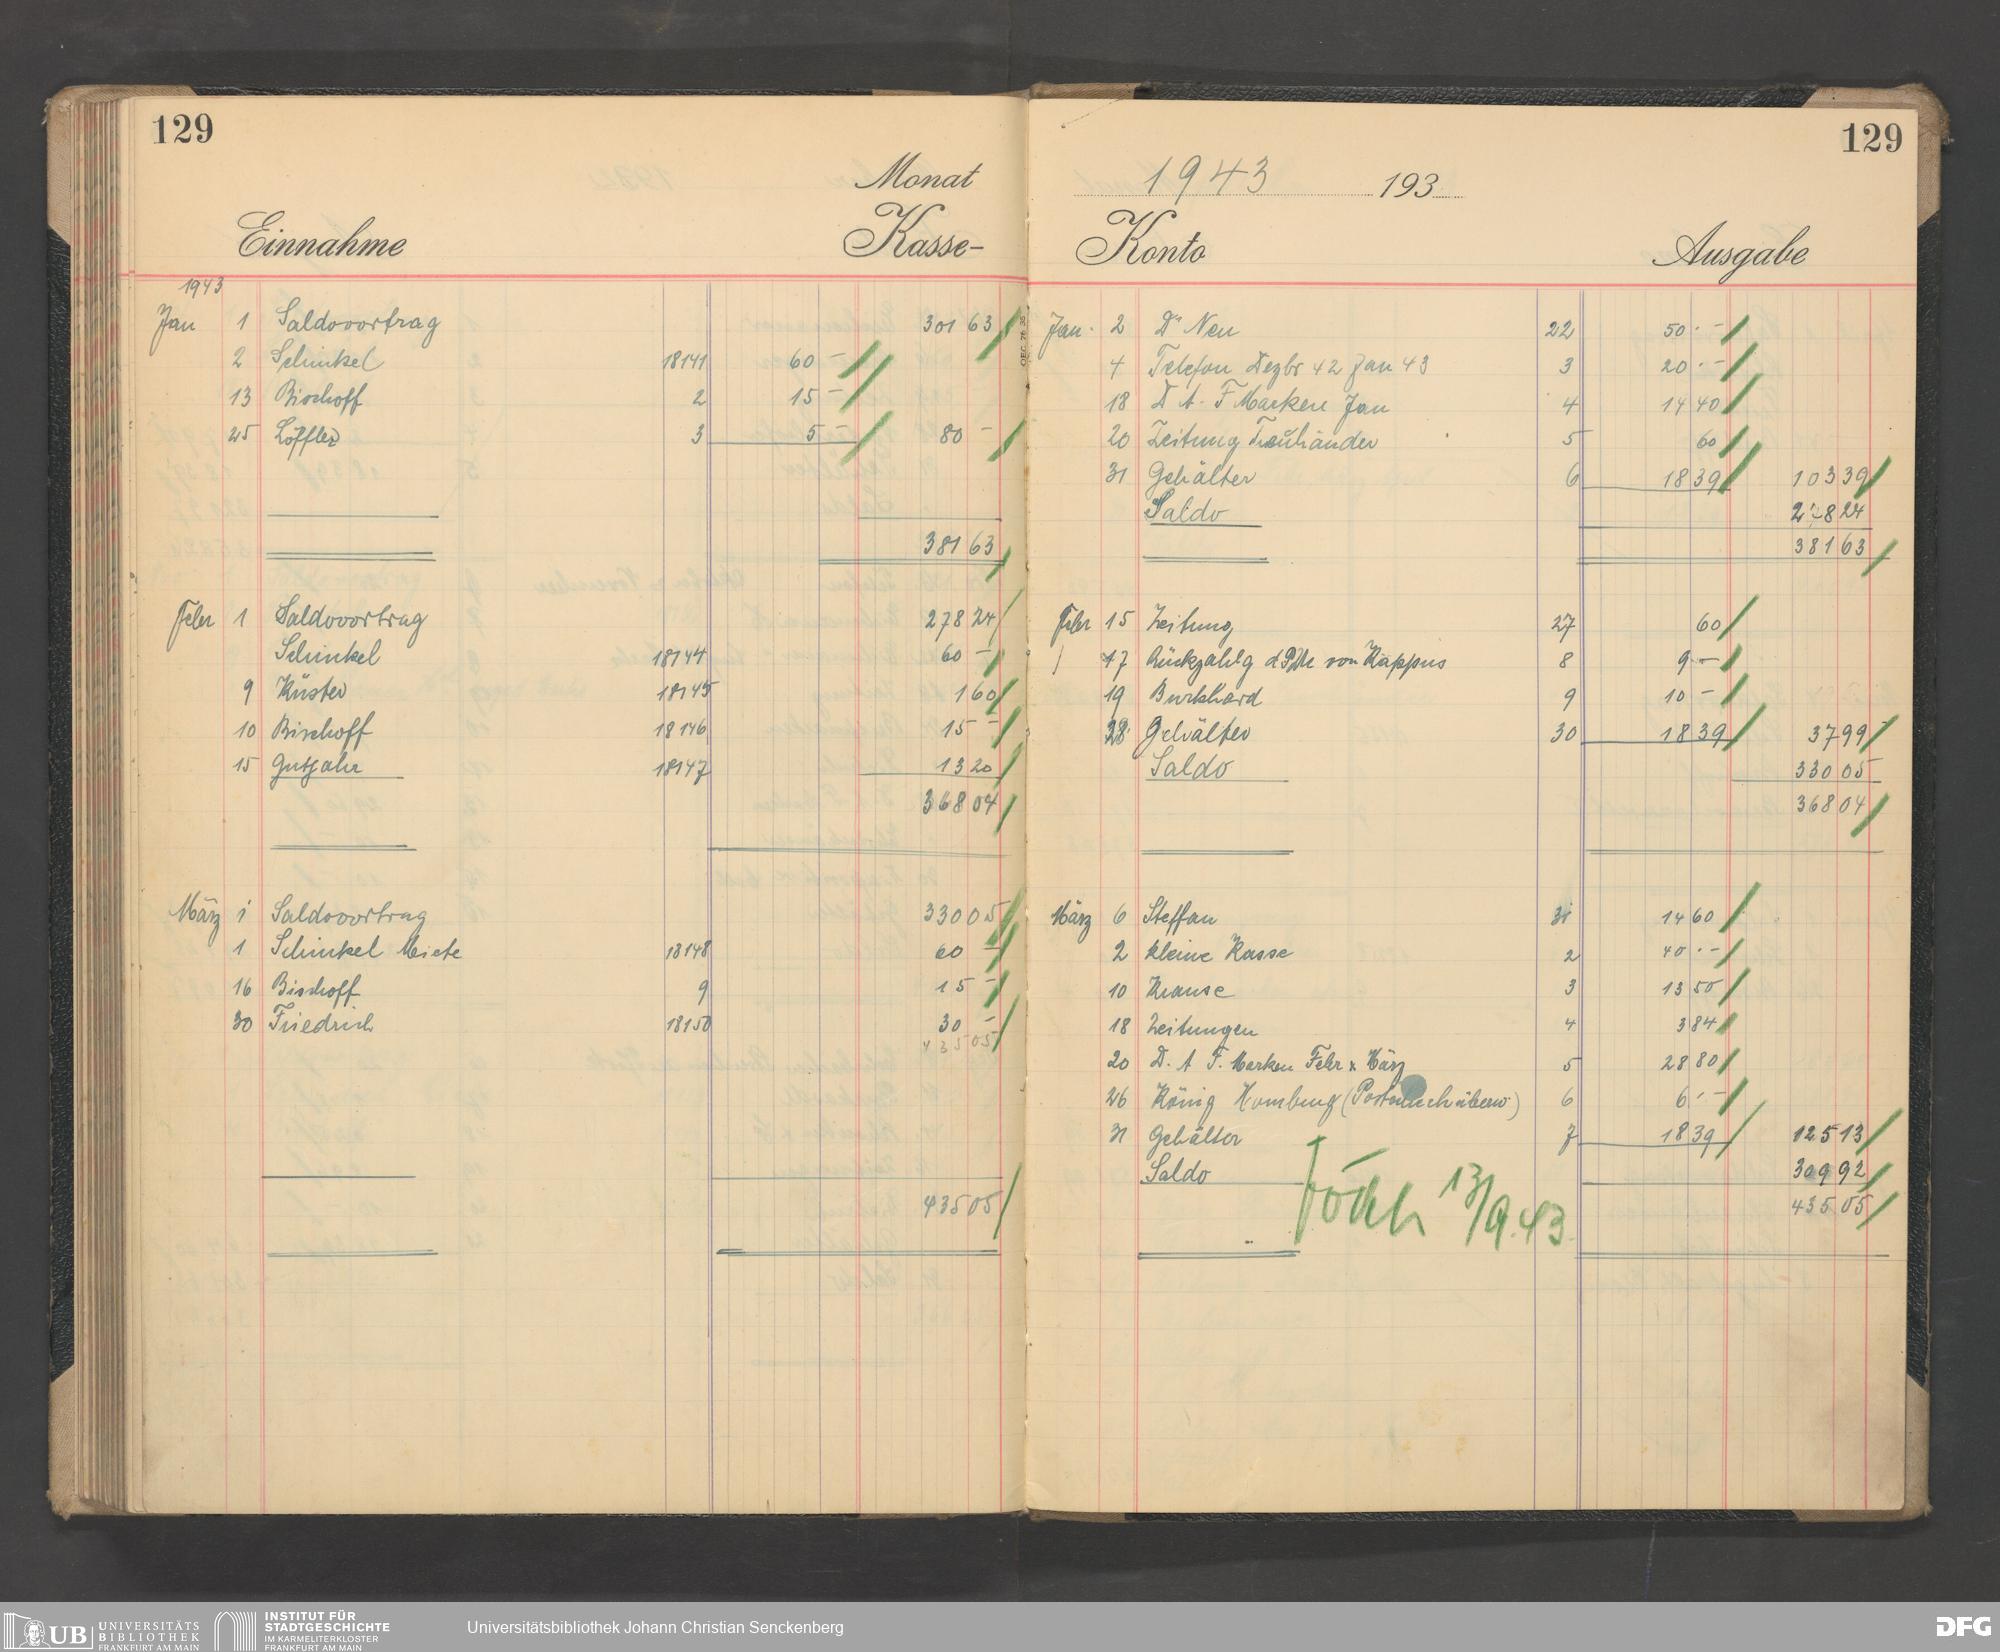 129
Monat
Einnahme Kasse-
1943
Jan 1 Saldovortrag 301 63
2 Schinkel 18141 60 –
13 Bischoff 2 15 –
25 Löffler 3 5 – 80 –
381 63
Febr 1 Saldovortrag 278 24
Schinkel 18144 60 –
9 Küster 18145 1 60
10 Bischoff 18146 15 –
15 Gutjahr 18147 13 20
368 04
März 1 Saldovortrag 330 05
1 Schinkel Miete 18148 60 –
16 Bischoff 9 15 –
30 Friedrich 18150 30 –
435 05
435 05
129
1943 193
Konto Ausgabe
Jan. 2 Dr Neu 22 50.–
4 Telefon Dezbr 42 Jan 43 3 20.–
18 D A. F Marken Jan 4 14 40
20 Zeitung Treuhänder 5 60
31 Gehälter 6 18 39 103 39
Saldo 278 24
381 63
Febr 15 Zeitung 27 60
17 Rückzahlg von Kappus 8 9 –
19 Burkhard 9 10 –
28 Gehälter 30 18 39 37 99
Saldo 330 05
368 04
März 6 Steffan 31 14 60
2 kleine Kasse 2 40.–
10 Krause 3 13 50
18 Zeitungen 4 3 84
20 D. A F. Marken Febr & März 5 28 80
26 König Homburg (Postscheküberw) 6 6.–
31 Gehälter 7 18 39 125 13
Saldo 309 92
435 05
13/9.43
OEC 776 35
UB UNIVERSITÄTS
BIBLIOTHEK
FRANKFURT AM MAIN
INSTITUT FÜR
STADTGESCHICHTE
IM KARMELITERKLOSTER
FRANKFURT AM MAIN
Universitätsbibliothek Johann Christian Senckenberg
DFG